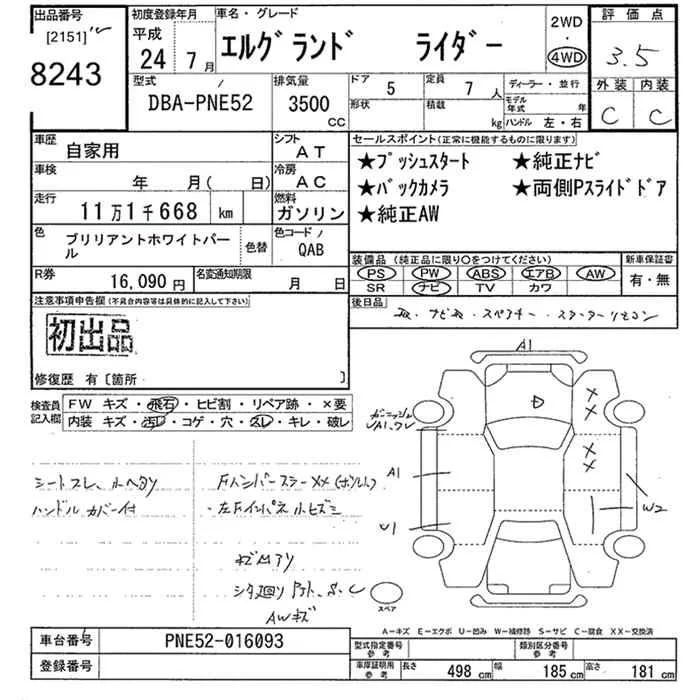 出品番号
[2151]
8243
初度登録年月
平成
24年7月
車名・グレード
エルグランド ライダー
2WD
・
4WD
評価点
3.5
外装 内装
C C
型式
DBA-PNE52
排気量
3500
CC
ドア 5
形状
定員 7人
積載 kg
ディーラー・並行
モデル年式 年
ハンドル 左・右
車歴 自家用
シフト AT
車検 年 月( 日)
冷房 AC
走行 11万1千668 km
燃料 ガソリン
色 ブリリアントホワイトパール
色替
色コード QAB
R券 16,090円
名変通知期限 月 日
セールスポイント(正常に機能するものに限ります)
★プッシュスタート ★純正ナビ
★バックカメラ ★両側Pスライドドア
★純正AW
装備品 (純正品に限り〇をつけてください)
PS PW ABS エアB AW
SR ナビ TV カワ
新車保証書
有・無
後日品
注意事項申告欄(不具合内容等は具体的に記入して下さい)
初出品
修復歴 有〔箇所 〕
検査員記入欄
FW キズ・飛石・ヒビ割・リペア跡・×要
内装 キズ・汚レ・コゲ・穴・スレ・キレ・破レ
シートスレ、小ヘタリ
ハンドルカバー付
AWキズ
A1
A1
U1
W2
XX
XX
スペア
A-キズ E-エクボ U-凹み W-補修跡 S-サビ C-腐食 XX-交換済
車台番号 PNE52-016093
登録番号
型式指定番号 参考
類別区分番号 参考
車庫証明用 参考
長さ 498cm 幅 185cm 高さ 181cm